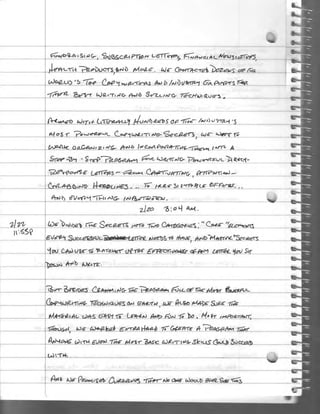 Fundraising, Subscription Letters, Financial Newsletters,
Health Products and More. We Contacted Dozens of the
World's Top Copywriters and Industry Experts for
Their Best Writing and Selling Techniques.
Armed with Literally Hundreds of the Industry's
Most Powerful Copywriting Secrets, we went to
Work Organizing and Incorporating them into a
Step-by-Step Program for Writing Powerful Direct-
Response Letters — from Captivating, Attention-
Grabbing Headlines ... to Irresistible Offers...
and Everything Inbetween.
2/20 3:04 AM.
2/22 We Divided the Secrets into Two Categories: "Core" Secrets
11:55P Every Successful Letter Needs to Have, and "Master" Secrets
You Can Use to Ratchet up the Effectiveness of Any Letter You Sit
Down and Write.
But Besides Cramming the Program Full of the Most Powerful
Copywriting Techniques on Earth, we Also Made Sure the
Material was Easy to Learn and Fun to Do. Most Important,
Though, we Worked Extra Hard to Create a Program that
Anyone with Even the Most Basic Writing Skills Could Succeed
With.
And we Promised Ourselves that No One Would Ever See this